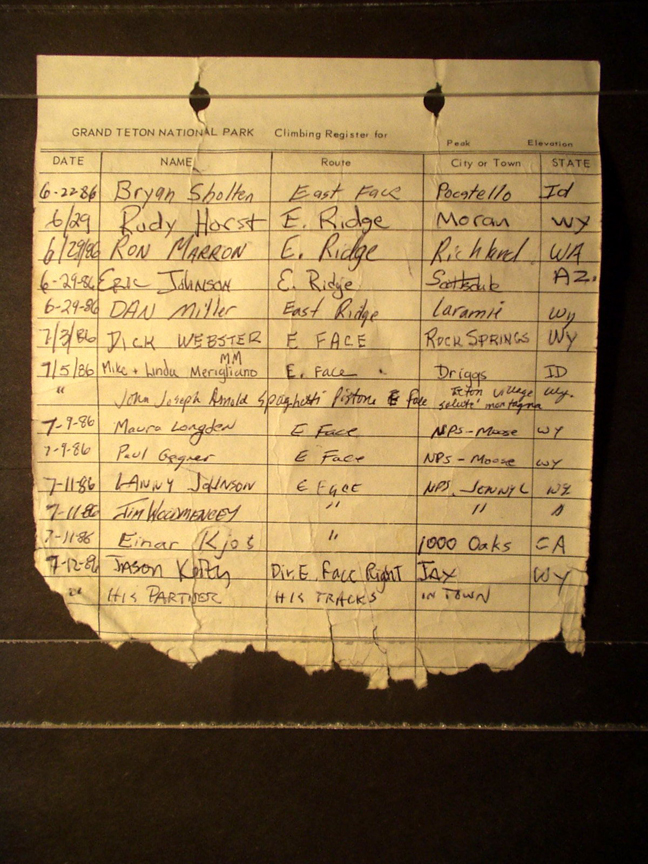 GRAND TETON NATIONAL PARK Climbing Register for
Peak Elevation
DATE NAME Route City or Town STATE
6-22-86 Bryan Sholten East Face Pocatello Id
6/29 Rudy Horst E. Ridge Moran WY
6/29/86 RON MARRON E. Ridge Richland WA
6-29-86 Eric Johnson E. Ridge Scottsdale AZ.
6-29-86 DAN Miller East Ridge Laramie Wy
7/3/86 DICK WEBSTER E FACE ROCK SPRINGS WY
MM
7/5/86 Mike + Linda Merigliano E. Face Driggs ID
" John Joseph Arnold Spaghetti Pistone E face Teton village Wy.
salute' montagna
7-9-86 Mauro Longden E Face NPS-Moose WY
7-9-86 Paul Gagner E Face NPS-Moose WY
7-11-86 LANNY JOHNSON E FACE NPS, JENNY L WY
7-11-86 JIM WOODMENCEY " " "
7-11-86 Einar Kjos " 1000 Oaks CA
7-12-86 JASON Keith Dir. E. Face Right JAX WY
" HIS PARTNER HIS TRACKS IN TOWN